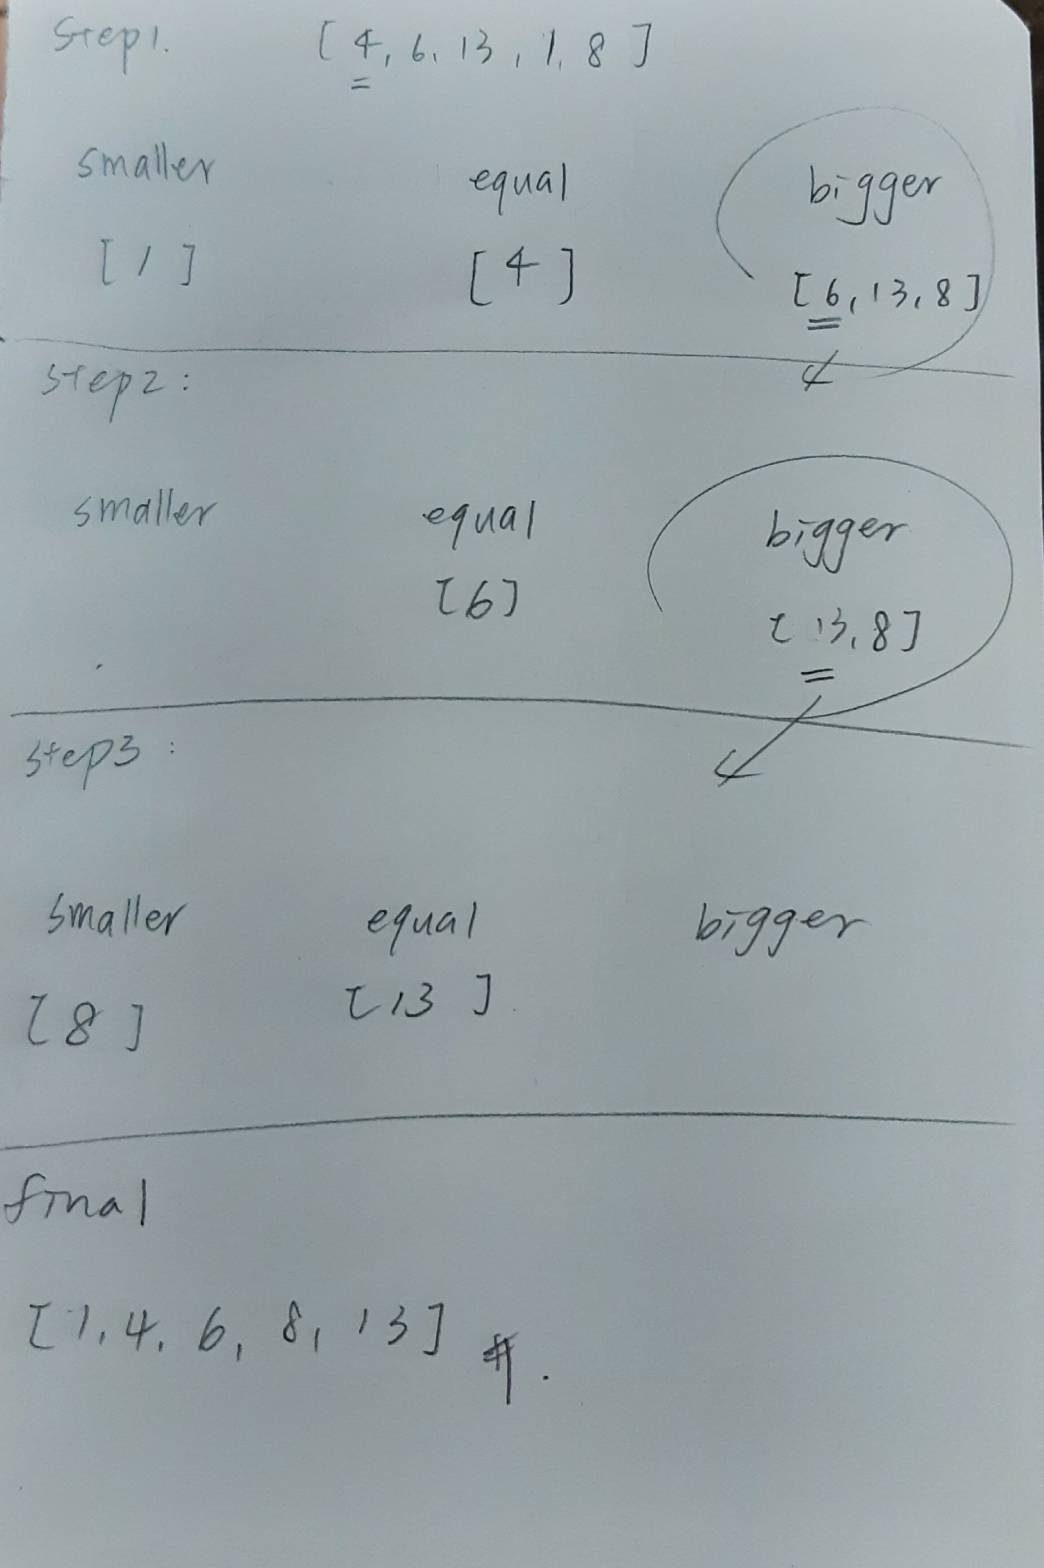 Step1. [4, 6, 13, 1, 8]
smaller equal bigger
[1] [4] [6, 13, 8]
Step2:
smaller equal bigger
[6] [13, 8]
Step3:
smaller equal bigger
[8] [13]
final
[1, 4, 6, 8, 13] #.